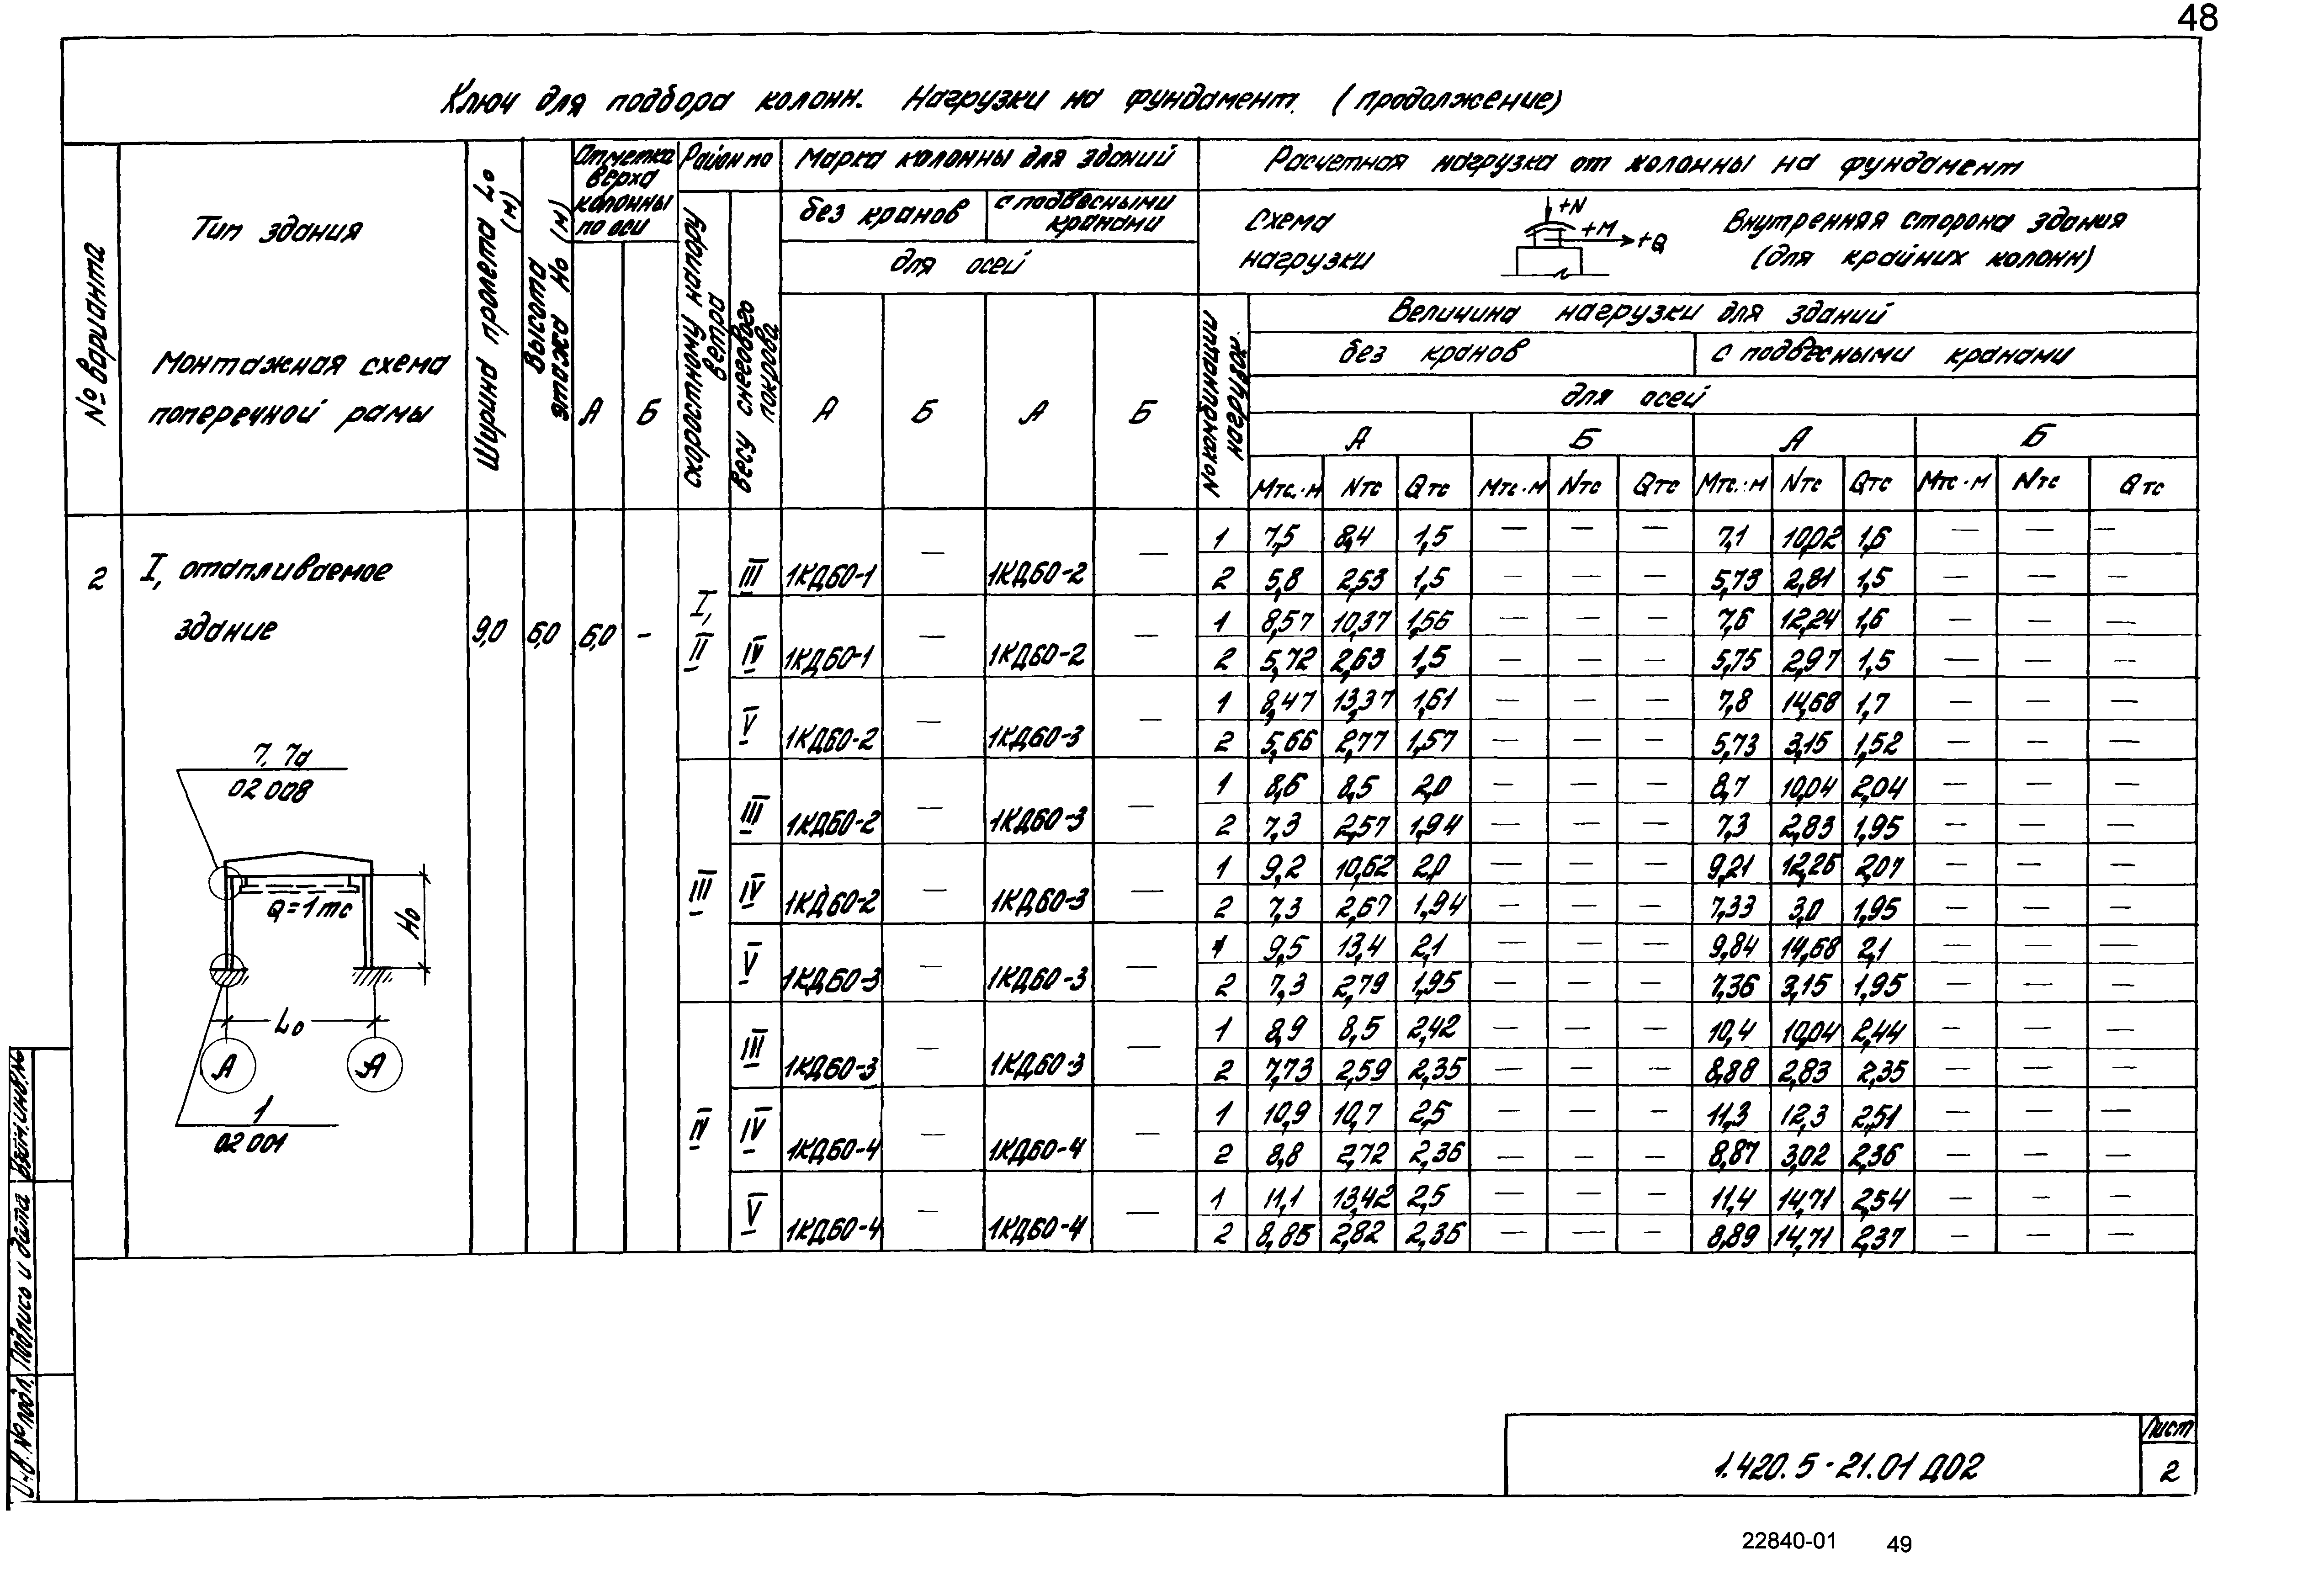 48
Ключ для подбора колонн. Нагрузки на фундамент. (продолжение)
№ варианта
Тип здания
Монтажная схема
поперечной рамы
Ширина пролета L₀ (м)
Высота этажа H₀ (м)
Отметка верха колонны по оси
А Б
Район по
скоростному напору ветра
весу снегового покрова
Марка колонны для зданий
без кранов с подвесными кранами
для осей
А Б А Б
Расчетная нагрузка от колонны на фундамент
Схема нагрузки
+N +M +Q
Внутренняя сторона здания
(для крайних колонн)
№ комбинации нагрузок
Величина нагрузки для зданий
без кранов с подвесными кранами
для осей
А Б А Б
Mтс.·м Nтс Qтс Mтс·м Nтс Qтс Mтс.·м Nтс Qтс Mтс·м Nтс Qтс
2 I, отапливаемое здание 9,0 6,0 6,0 –
I, II III 1КД60-1 – 1КД60-2 – 1 7,5 8,4 1,5 – – – 7,1 10,02 1,6 – – –
2 5,8 2,53 1,5 – – – 5,73 2,81 1,5 – – –
IV 1КД60-1 – 1КД60-2 – 1 8,57 10,37 1,56 – – – 7,6 12,24 1,6 – – –
2 5,72 2,63 1,5 – – – 5,75 2,97 1,5 – – –
V 1КД60-2 – 1КД60-3 – 1 8,47 13,37 1,61 – – – 7,8 14,68 1,7 – – –
2 5,66 2,77 1,57 – – – 5,73 3,15 1,52 – – –
III III 1КД60-2 – 1КД60-3 – 1 8,6 8,5 2,0 – – – 8,7 10,04 2,04 – – –
2 7,3 2,57 1,94 – – – 7,3 2,83 1,95 – – –
IV 1КД60-2 – 1КД60-3 – 1 9,2 10,62 2,0 – – – 9,21 12,26 2,07 – – –
2 7,3 2,67 1,94 – – – 7,33 3,0 1,95 – – –
V 1КД60-3 – 1КД60-3 – 1 9,5 13,4 2,1 – – – 9,84 14,68 2,1 – – –
2 7,3 2,79 1,95 – – – 7,36 3,15 1,95 – – –
IV III 1КД60-3 – 1КД60-3 – 1 8,9 8,5 2,42 – – – 10,4 10,04 2,44 – – –
2 7,73 2,59 2,35 – – – 8,88 2,83 2,35 – – –
IV 1КД60-4 – 1КД60-4 – 1 10,9 10,7 2,5 – – – 11,3 12,3 2,51 – – –
2 8,8 2,72 2,36 – – – 8,87 3,02 2,36 – – –
V 1КД60-4 – 1КД60-4 – 1 11,1 13,42 2,5 – – – 11,4 14,71 2,54 – – –
2 8,85 2,82 2,36 – – – 8,89 14,71 2,37 – – –
7, 7а
02 008
Q=1тс
H₀
L₀
А А
1
02 001
Взам.инв.№
Подпись и дата
Инв.№ подл.
1.420.5-21.01 Д02
Лист
2
22840-01 49